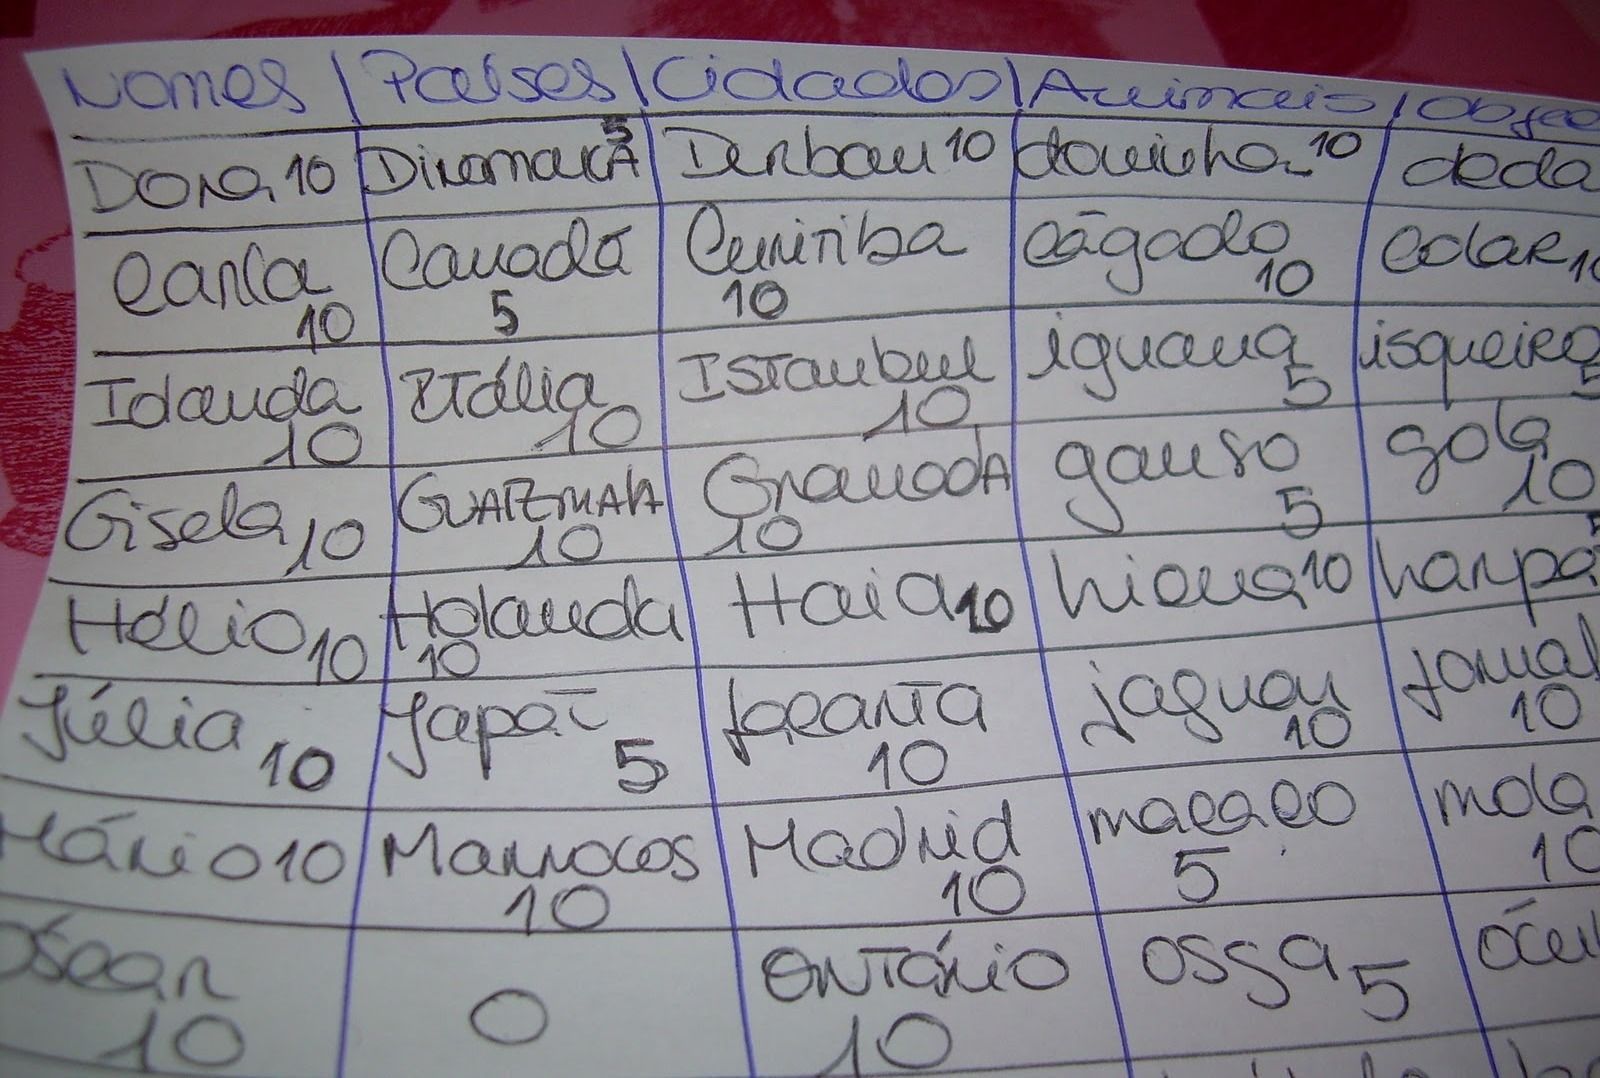 Nomes | Países | Cidades | Animais | Objec
Dora 10 Dinamarca 5 Durban 10 doninha 10 deda
Carla 10 Canadá 5 Curitiba 10 cágado 10 colar 10
Idanda 10 Itália 10 Istanbul 10 iguana 5 isqueiro 5
Gisela 10 Guatemala 10 Granada 10 ganso 5 gola 10
Hélio 10 Holanda 10 Haia 10 hiena 10 harpa 5
Júlia 10 Japão 5 Jacarta 10 jaguar 10 jornal 10
Mário 10 Marrocos 10 Madrid 10 macaco 5 mola 10
Óscar 10 0 Ontário 10 osga 5 ócul